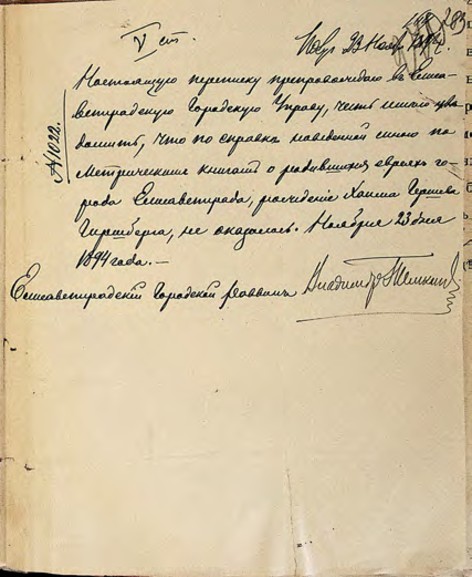 V ст.
23 Нояб
№1022.
Настоящую переписку препровождаю въ Елиса-
ветградскую Городскую Управу, честь имею уве
домить, что по справке наведенной мною по
Метрическимъ книгамъ о родившихся евреяхъ го-
рода Елисаветграда, рождение Хаима Гершева
Гиршберга, не оказалось. Ноября 23 дня
1894 года. —
Елисаветградский Городской Раввинъ Владимиръ Темкинъ